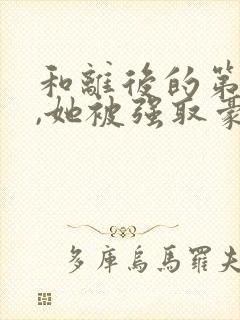 和離後的第
,她被强取豪
多庫烏馬羅夫